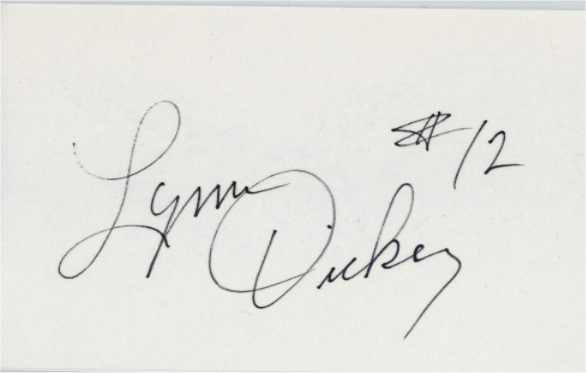 #12
Lynn Dickey